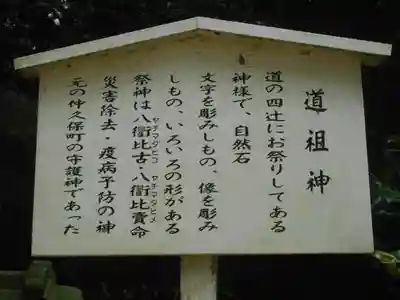 道祖神
道の四辻にお祭りしてある
神様で、自然石
文字を彫みしもの、像を彫み
しもの、いろいろの形がある
祭神は八衢比古・八衢比賣命
ヤチマタヒコ ヤチマタヒメ
災害除去・疫病予防の神
元の仲久保町の守護神であった